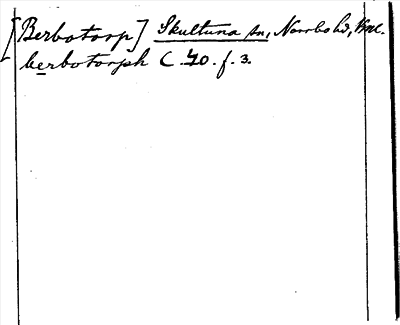 [Berbotorp] Skultuna sn, Norrbo hd, Vml.
berbotorph C. 40. f. 3.